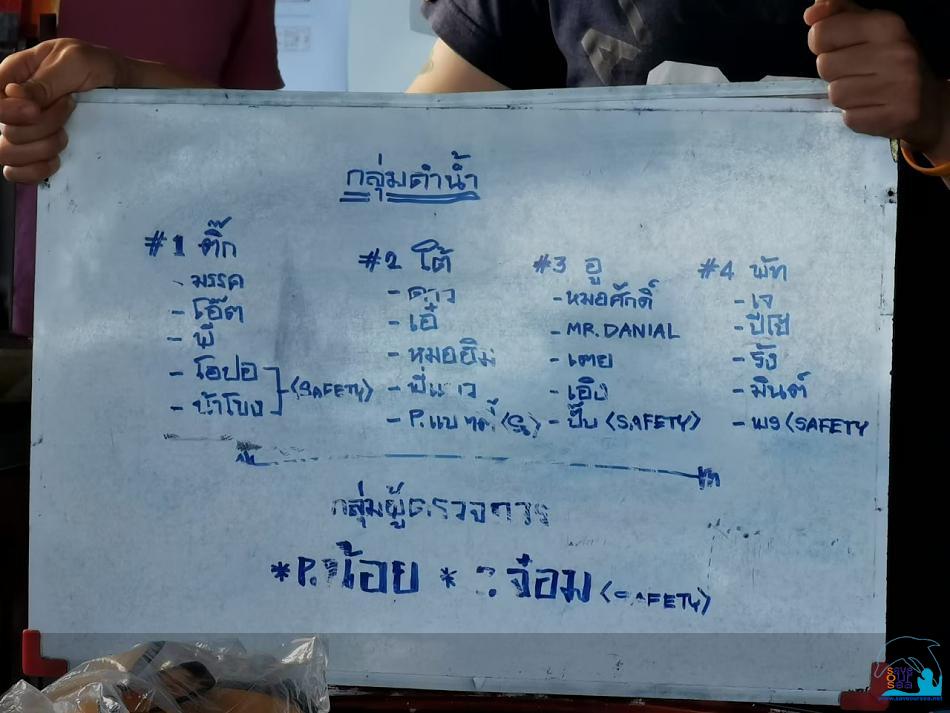 กลุ่มดำน้ำ
#1 ติ๊ก
- มรรค
- โอ๊ต
- พี
- โอปอ
- น้าโบง
<SAFETY>
#2 โต้
- ดาว
- เอ๋
- หมออิม
- P.แบ
#3 อู
- หมอศักดิ์
- MR. DANIAL
- เตย
- เอิง
- ปั๊บ <SAFETY>
#4 พัท
- เจ
- รัง
- มินต์
- <SAFETY
กลุ่มผู้ตรวจการ
* P.น้อย * จ๋อม <SAFETY>
Save Our Sea
www.saveoursea.net